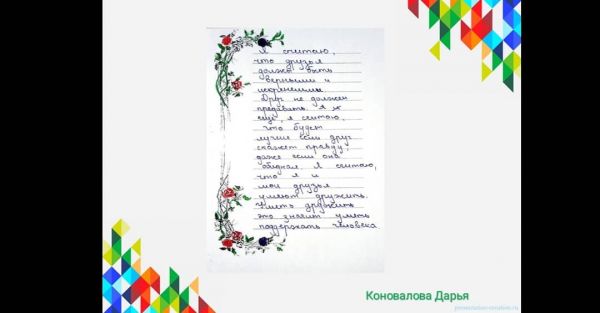 Я считаю,
что друзья
должы быть
верными и
искренними
Друг не должен
предавать. А я
ещё, я считаю,
что будет
лучше если друг
скажет правду,
даже если она
обидная. Я считаю,
что я и
мои друзья
умеют дружить.
Уметь дружить
это значит уметь
поддержать человека.
Коновалова Дарья
presentation-creation.ru